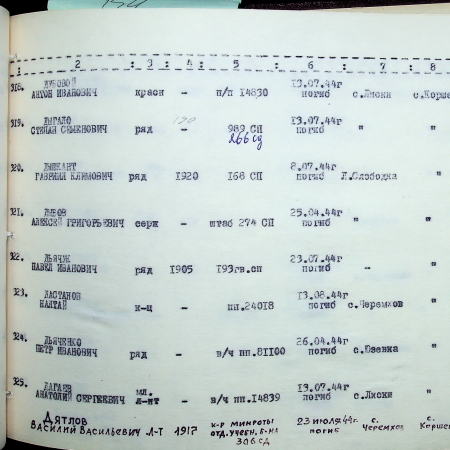 : 2 : 3 : 4 : 5 : 6 : 7 : 8
318. ДУБОВОЙ 13.07.44г
АНТОН ИВАНОВИЧ красн - п/п 14830 погиб с.Лиски с.Корше
319. ДЫГАЛО 190 13.07.44г
СТЕПАН СЕМЕНОВИЧ ряд - 989 СП погиб " "
266 сд
320. 8.07.44г
ГАВРИИЛ КЛИМОВИЧ ряд 1920 168 СП погиб Л.Слободка "
321. 25.04.44г
АЛЕКСЕЙ ГРИГОРЬЕВИЧ серж - штаб 274 СП погиб " "
322. ДЬЯЧУК 23.07.44г
ПАВЕЛ ИВАНОВИЧ ряд 1905 193гв.сп погиб - "
323. ДАСТАНОВ 13.08.44г
НАЛТАЙ к-ц - пп.24018 погиб с.Черемхов "
324. ДЬЯЧЕНКО 26.04.44г
ПЕТР ИВАНОВИЧ ряд - в/ч пп.81100 погиб с.Юзевка "
325. ДАГАЕВ мл. 13.07.44г
АНАТОЛИЙ СЕРГЕЕВИЧ л-нт - в/ч пп.14839 погиб с.Лиски "
ДЯТЛОВ к-р минроты 23 июля 44г. с. с.
ВАСИЛИЙ ВАСИЛЬЕВИЧ Л-Т 1917 отд. учебн. б-на погиб Черемхов Коршев
306 сд